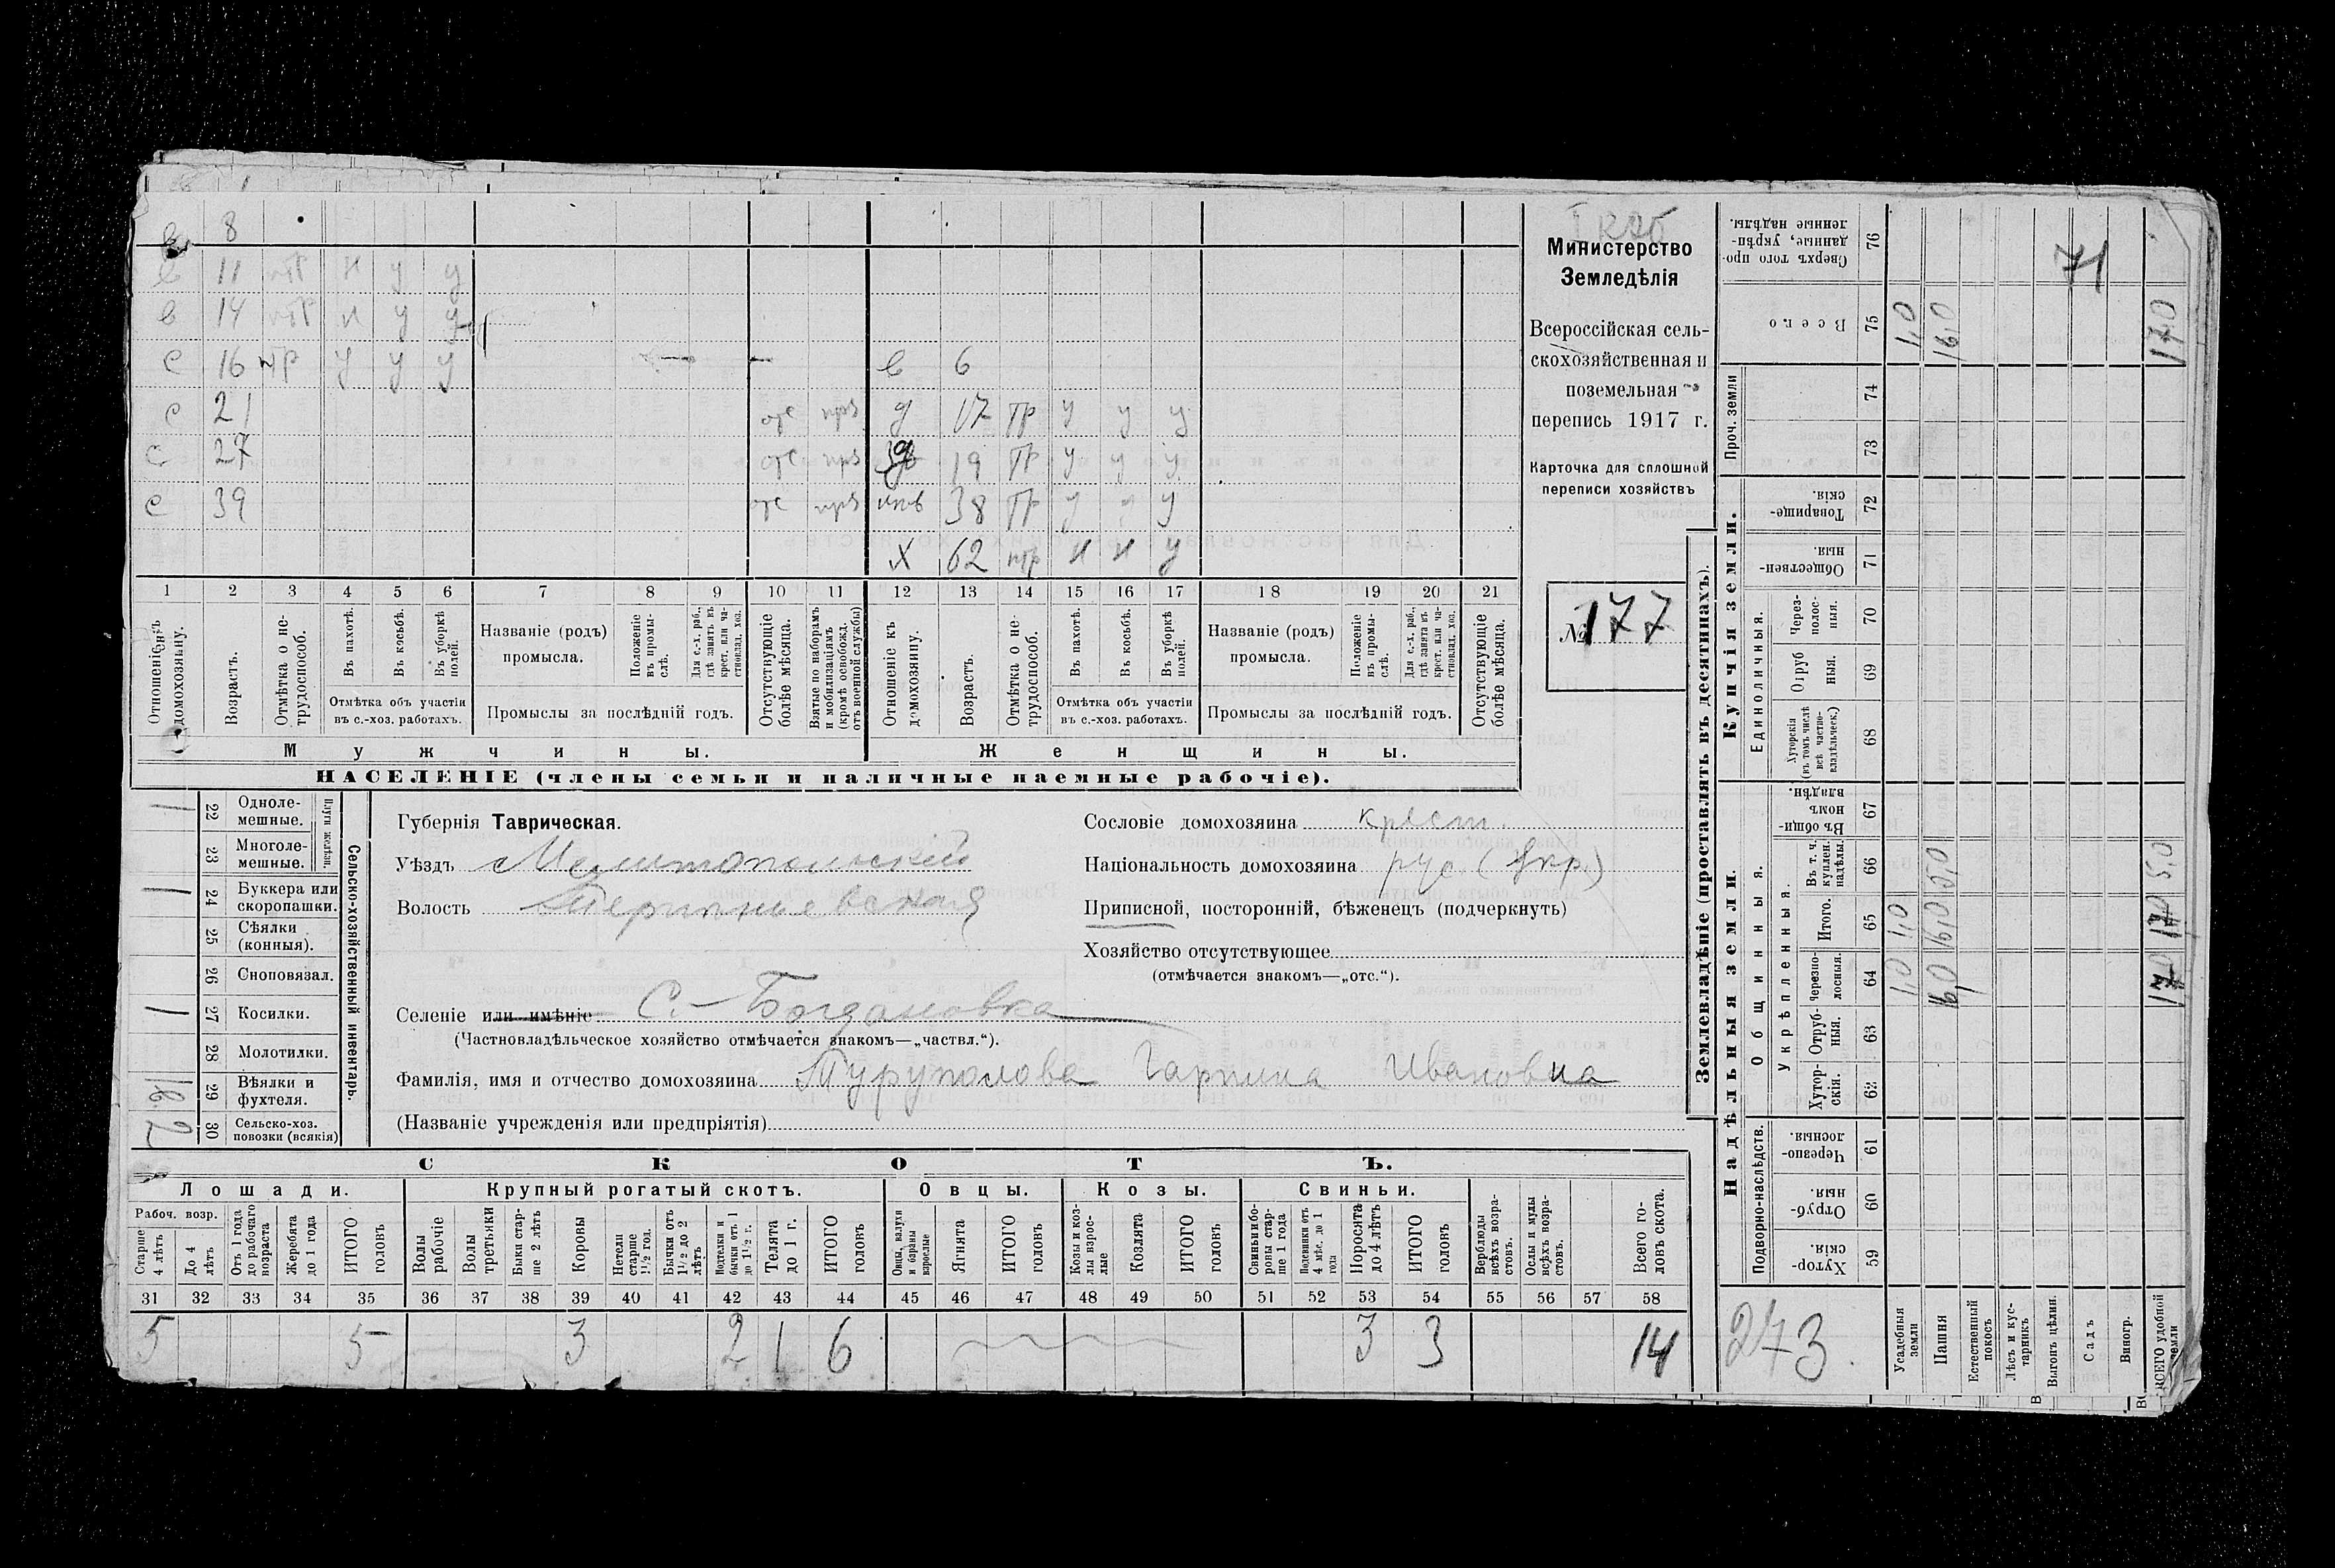 в 8
в 11 нтр н у у
в 14 нтр н у у
с 16 нтр у у у в 6
с 21 отс прз д 17 тр у у у
с 27 отс прз д 19 тр у у у
с 39 отс прз нтв 38 тр у у у
х 62 нтр н н у
1 2 3 4 5 6 7 8 9 10 11 12 13 14 15 16 17 18 19 20 21
Отношеніе къ домохозяину.
Возрастъ.
Отмѣтка о нетрудоспособ.
Въ пахотѣ.
Въ косьбѣ.
Въ уборкѣ полей.
Отмѣтка объ участіи въ с.-хоз. работахъ.
Названіе (родъ) промысла.
Положеніе въ промыслѣ.
Для с.-х. раб., гдѣ занятъ въ крест. или частновлад. хоз.
Промыслы за послѣдній годъ.
Отсутствующіе болѣе мѣсяца.
Взятые по наборамъ и мобилизаціямъ (кромѣ освобожд. отъ военной службы)
Отношеніе къ домохозяину.
Возрастъ.
Отмѣтка о нетрудоспособ.
Въ пахотѣ.
Въ косьбѣ.
Въ уборкѣ полей.
Отмѣтка объ участіи въ с.-хоз. работахъ.
Названіе (родъ) промысла.
Положеніе въ промыслѣ.
Для с.-х. раб., гдѣ занята въ крест. или частновлад. хоз.
Промыслы за послѣдній годъ.
Отсутствующіе болѣе мѣсяца.
Мужчины. Женщины.
НАСЕЛЕНІЕ (члены семьи и наличные наемные рабочіе).
Министерство
Земледѣлія
Всероссійская сель-
скохозяйственная и
поземельная
перепись 1917 г.
Карточка для сплошной
переписи хозяйствъ
№ 177
1 22 Одноле-мешные.
23 Многоле-мешные.
Плуги желѣзн.
1 24 Буккера или скоропашки.
25 Сѣялки (конныя).
26 Сноповязал.
1 27 Косилки.
28 Молотилки.
29 Вѣялки и фухтеля.
2 30 Сельско-хоз. повозки (всякія)
Сельско-хозяйственный инвентарь.
Губернія Таврическая.
Уѣздъ Мелитопольскій
Волость Терпеніевская
Селеніе или имѣніе С. Богдановка
(Частновладѣльческое хозяйство отмѣчается знакомъ—„частвл.“).
Фамилія, имя и отчество домохозяина Туруполова Гарпина Ивановна
(Названіе учрежденія или предпріятія)
Сословіе домохозяина крест.
Національность домохозяина рус. (укр.)
Приписной, посторонній, бѣженецъ (подчеркнуть)
Хозяйство отсутствующее
(отмѣчается знакомъ—„отс.“).
СКОТЪ.
Лошади. Крупный рогатый скотъ. Овцы. Козы. Свиньи.
Рабоч. возр.
Старше 4 лѣтъ
До 4 лѣтъ
Отъ 1 года до рабочаго возраста
Жеребята до 1 года
ИТОГО головъ
Волы рабочіе
Волы третьяки
Быки старше 2 лѣтъ
Коровы
Нетели старше 1½ год.
Бычки отъ 1½ до 2 лѣтъ
Подтелки и бычки отъ 1 до 1½ г.
Телята до 1 г.
ИТОГО головъ
Овцы, валухи и бараны взрослые
Ягнята
ИТОГО головъ
Козы и козлы взрослые
Козлята
ИТОГО головъ
Свиньи и боровы старше 1 года
Подсвинки отъ 4 мѣс. до 1 года
Поросята до 4 лѣтъ
ИТОГО головъ
Верблюды всѣхъ возрастовъ.
Ослы и мулы всѣхъ возрастовъ.
Всего головъ скота.
31 32 33 34 35 36 37 38 39 40 41 42 43 44 45 46 47 48 49 50 51 52 53 54 55 56 57 58
5 5 3 2 1 6 3 3 14
Землевладѣніе (проставлять въ десятинахъ).
Купчія земли.
Надѣльныя земли.
Сверхъ того проданные, укрѣпленные надѣлы. 76
71
Всего 75 1,0 16,0 17,0
Проч. земли 74
73
Товарищескія. 72
Общественныя. 71
Единоличныя.
Черезполосныя. 70
Отрубныя. 69
Хуторскія (въ томъ числѣ всѣ частновладѣльческ.) 68
Общинныя.
Въ общинномъ владѣн. 67
Укрѣпленныя.
Въ т. ч. куплен. надѣлы. 66 5,0 5,0
Итого. 65 1,0 16,0 17,0
Черезполосныя. 64 1,0 16,0 17,0
Отрубныя. 63
Хуторскія. 62
Подворно-наслѣдств.
Черезполосныя. 61
Отрубныя. 60
Хуторскія. 59
273.
Усадебныя земли
Пашня
Естественный покосъ
Лѣсъ и кустарникъ
Выгонъ цѣлин.
Садъ
Виногр.
ВСЕГО удобной земли